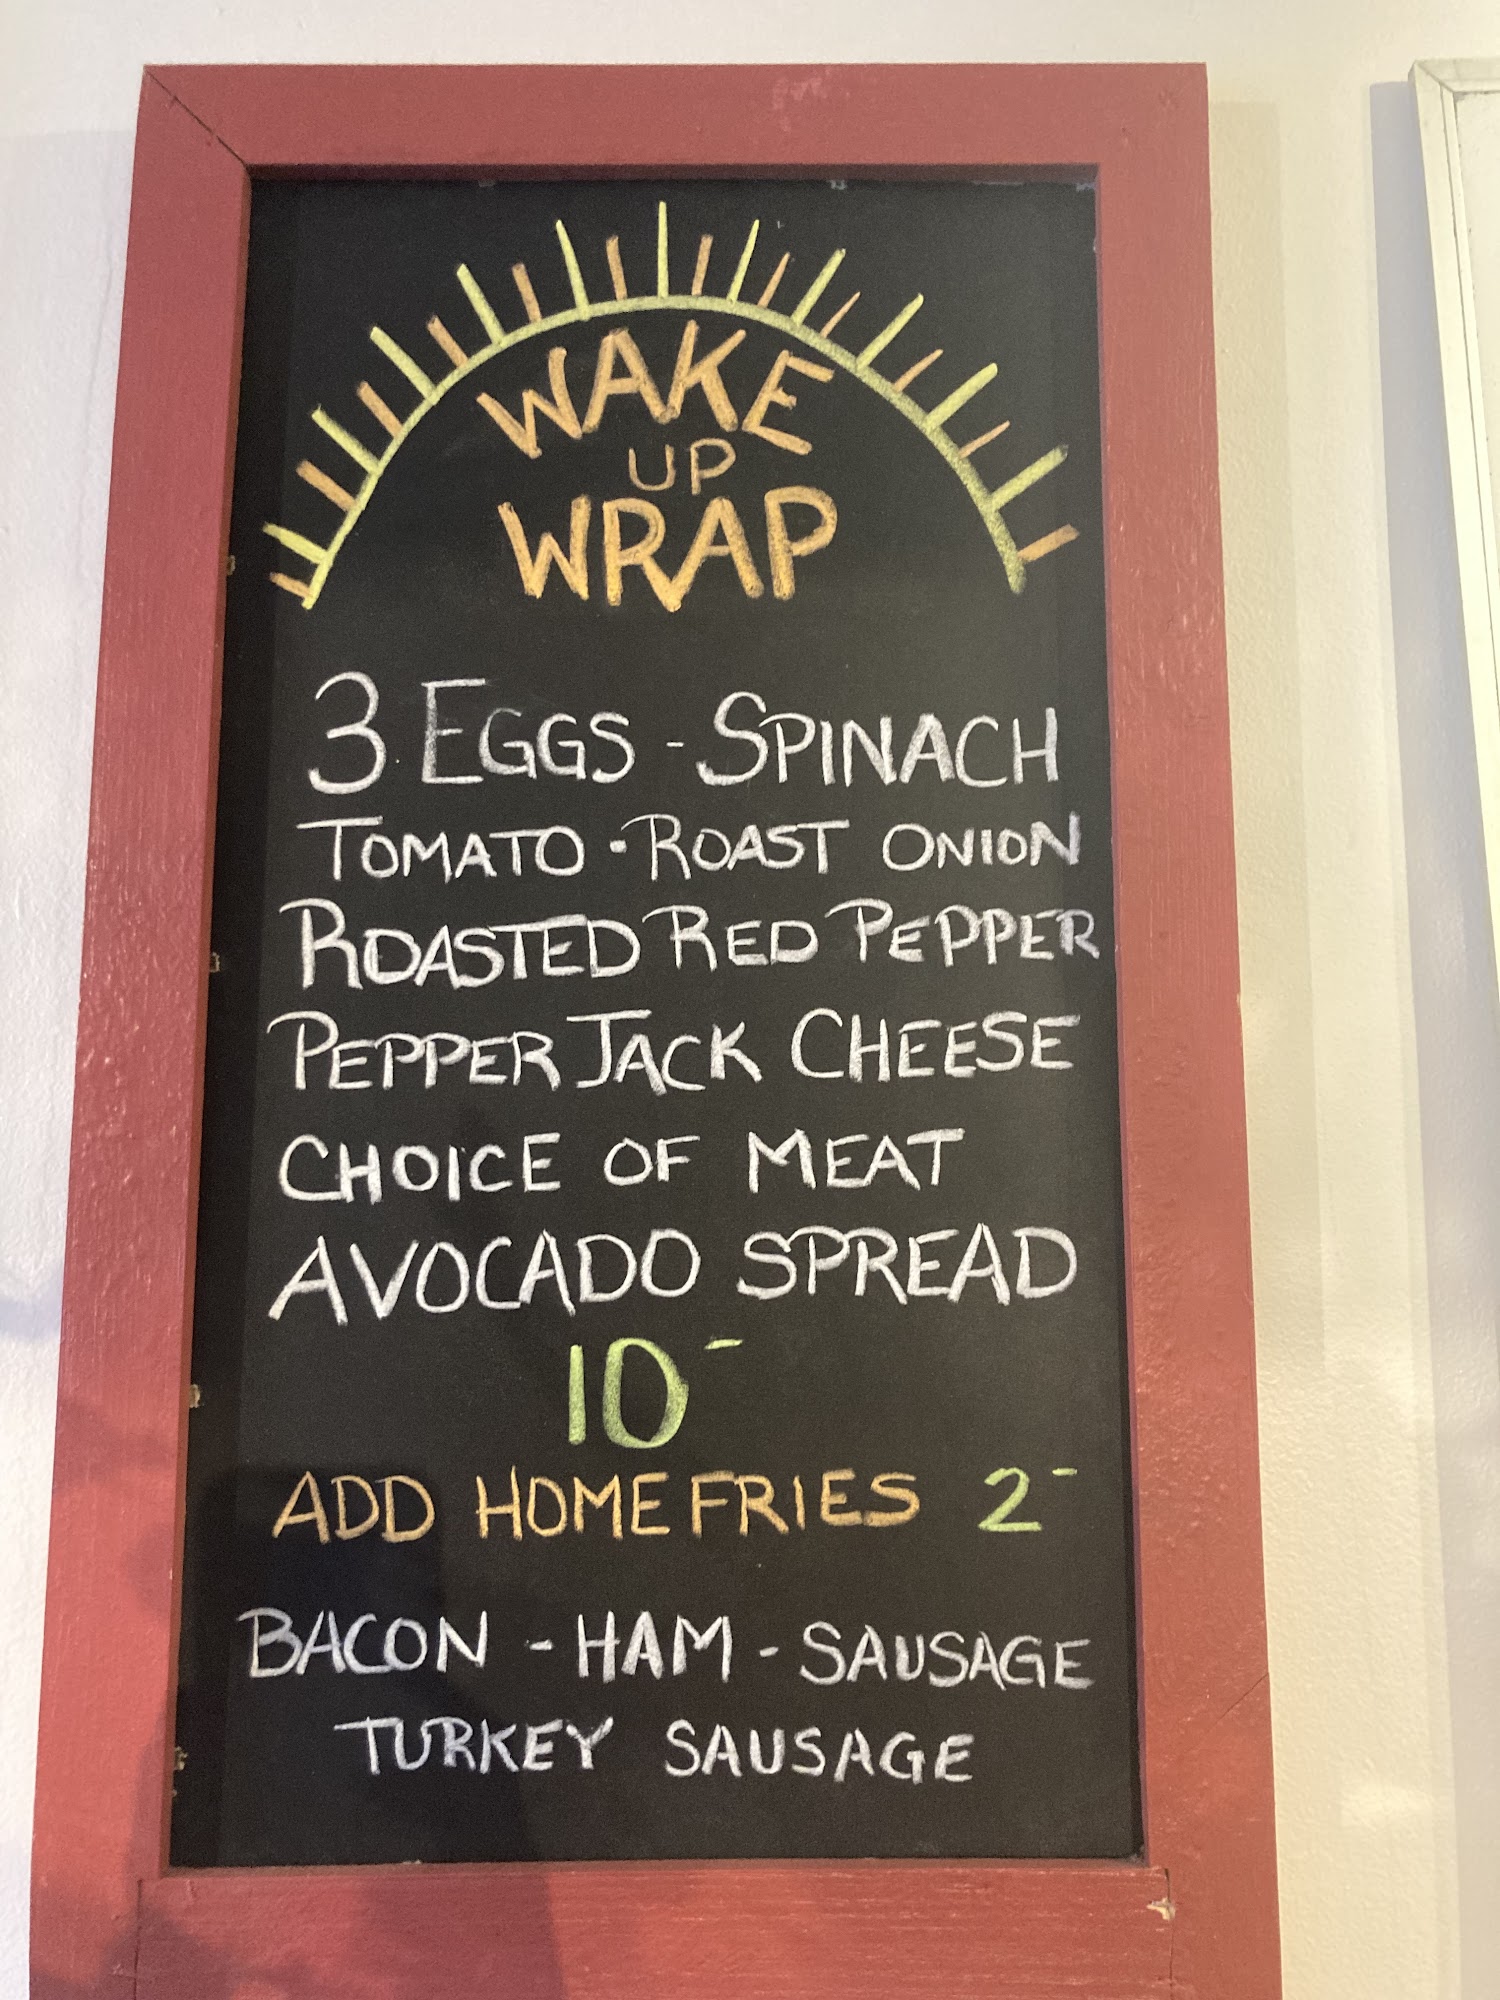 WAKE
UP
WRAP
3 EGGS - SPINACH
TOMATO • ROAST ONION
ROASTED RED PEPPER
PEPPER JACK CHEESE
CHOICE OF MEAT
AVOCADO SPREAD
10-
ADD HOME FRIES 2-
BACON - HAM - SAUSAGE
TURKEY SAUSAGE